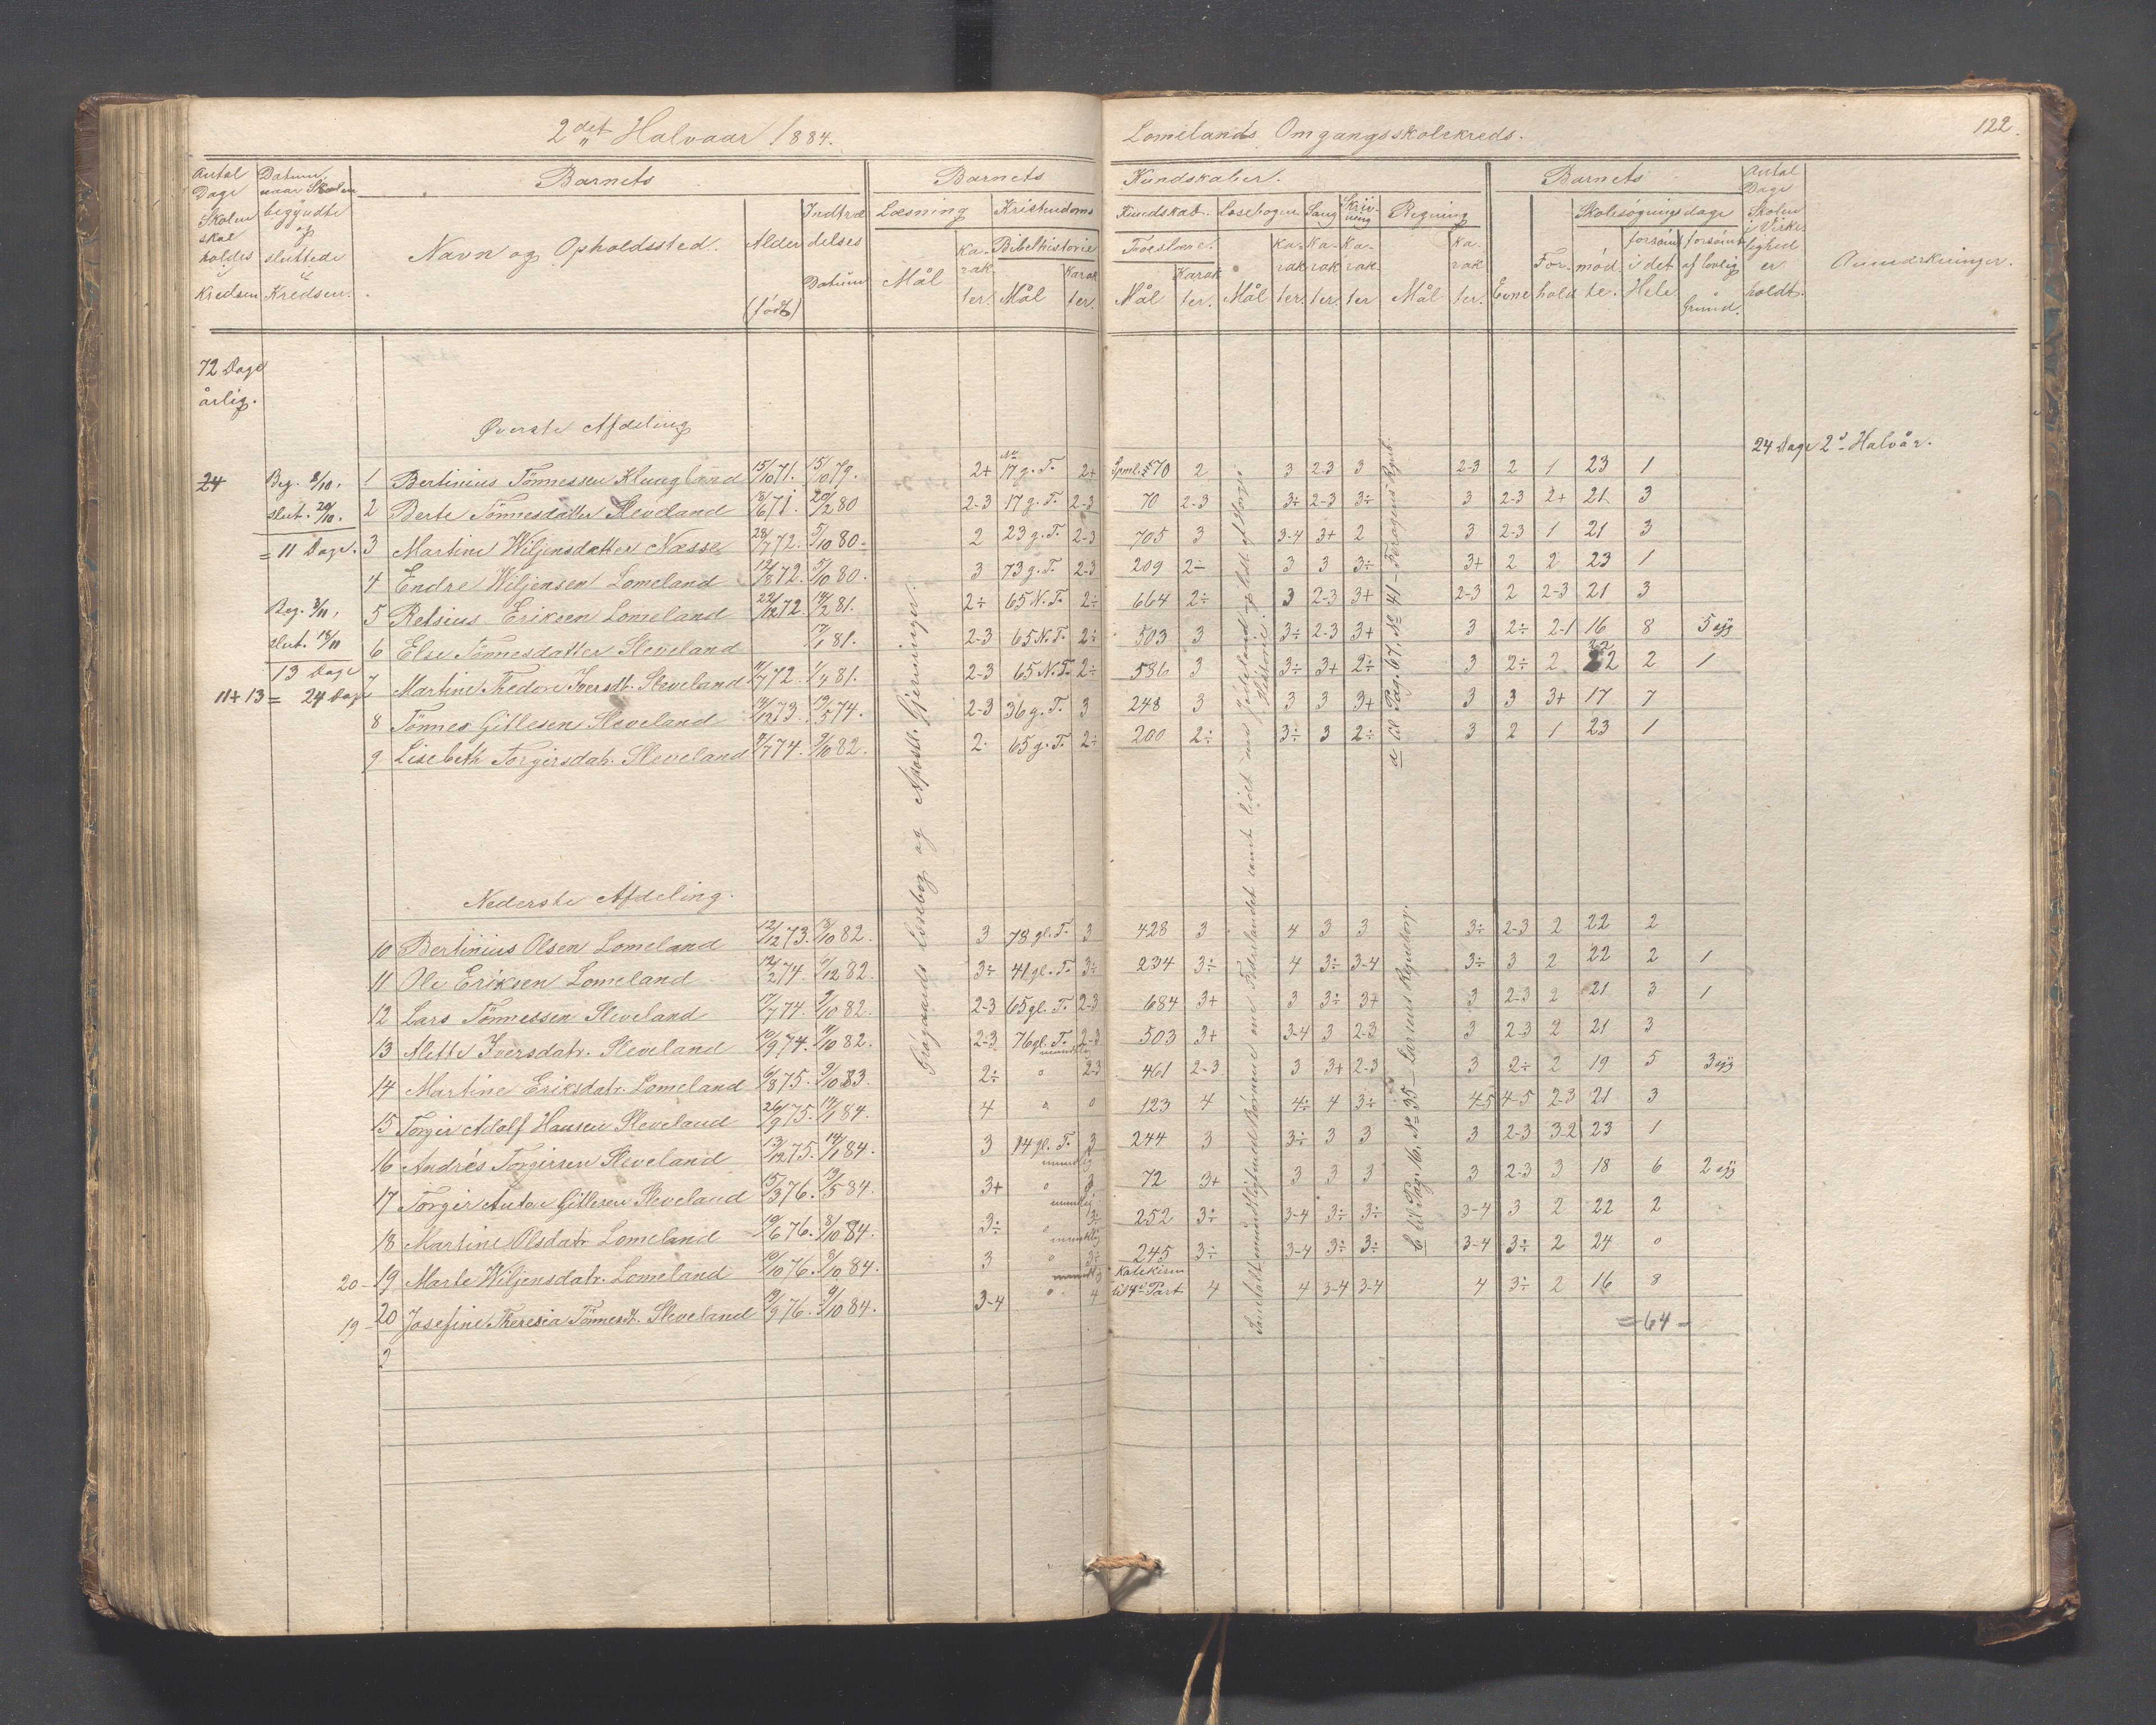 2det Halvaar 1884.
Lomelands Omgangsskolekreds.
122.
Antal Dage Skolen skal holdes i Kredsen
Datum, naar Skolen begyndte og sluttede i Kredsen.
Barnets
Navn og Opholdssted.
Alder (født)
Indtrædelses Datum
Barnets Kundskaber.
Læsning Mål Karakter.
Kristendoms Kundskab.
Bibelhistorie Mål Karakter.
Troeslære. Mål Karakter.
Læsebogen Mål Karakter.
Sang Karakter.
Skrivning Karakter
Regning Mål Karakter.
Barnets
Evne Forhold
Skolesøgningsdage
mødte. forsømt i det Hele forsømt af lovlig Grund.
Antal Dage Skolen i Virkelighed er holdt.
Anmærkninger.
72 Dage
årlig.
Øverste Afdeling
24 Dage 2d Halvår.
24 Beg. 8/10. 1 Bertinius Tönnessen Klungland 15/10 71. 15/10 79. 2+ No 17 g. T. 2+ Spml. 570 2 3 2-3 3 2-3 2 1 23 1
slut. 20/10. 2 Berte Tönnesdatter Sleveland 8/6 71. 20/2 80 2-3 17 g. T. 2-3 70 2-3 3÷ 2-3 3÷ 3 2-3 2+ 21 3
= 11 Dage. 3 Martine Wiljensdatter Næsse 28/7 72. 5/10 80. 2 23 g. T. 2-3 705 3 3-4 3+ 2 3 2-3 1 21 3
4 Endre Wiljensen Lomeland 12/8 72. 5/10 80. 3 73 g. T. 2-3 209 2÷ 3 3 3÷ 3+ 2 2 23 1
Beg. 3/11, 5 Retsius Eriksen Lomeland 22/12 72. 14/2 81. 2÷ 65 N. T. 2÷ 664 2÷ 3 2-3 3+ 2-3 2 2-3 21 3
slut. 18/11 6 Else Tönnesdatter Sleveland 17/1 81. 2-3 65 N. T. 2÷ 503 3 3÷ 2-3 3+ 3 2÷ 2-1 16 8 5 syg
13 Dage 7 Martine Thedore Iversdt. Sleveland 11/7 72. 1/4 81. 2-3 65 N. T. 2÷ 586 3 3÷ 3+ 2÷ 3 2÷ 2 22 2 1
11+13 = 24 Dage
8 Tönnes Gitlesen Sleveland 14/12 73. 19/5 74. 2-3 36 g. T. 3 248 3 3 3 3+ 3 3 3+ 17 7
9 Lisebeth Torgersdatr. Sleveland 7/7 74. 9/10 82. 2. 65 g. T. 2÷ 200 2÷ 3÷ 3 2÷ 3 2 1 23 1
Læsebog og Apostl. Gjerninger.
a til Pag. 67. No 41
Nederste Afdeling.
10 Bertinius Olsen Lomeland 12/12 73. 13/10 82. 3 78 gl. T. 3 428 3 4 3 3 3÷ 2-3 2 22 2
11 Ole Eriksen Lomeland 12/2 74. 7/12 82. 3÷ 41 gl. T. 3÷ 234 3÷ 4 3÷ 3-4 3÷ 3 2 22 2 1
12 Lars Tönnessen Sleveland 17/7 74. 9/10 82. 2-3 65 gl. T. 2-3 684 3+ 3 3÷ 3+ 3 2-3 2 21 3 1
13 Alette Iversdatr. Sleveland 10/9 74. 11/10 82. 2-3 76 gl. T. 2-3 503 3+ 3-4 3 2-3 3 2-3 2 21 3
14 Martine Eriksdatr. Lomeland 6/8 75. 9/10 83. 2÷ mundtlig 2-3 461 2-3 3 3+ 2-3 3 2÷ 2 19 5 3 syg
15 Torger Adolf Hansen Sleveland 26/9 75. 14/1 84. 4 0 0 123 4 4÷ 4 3÷ 4-5 4-5 2-3 21 3
16 Andrés Torgersen Sleveland 13/12 75. 14/1 84. 3 14 gl. T. 3 244 3 3÷ 3 3 3 2-3 3-2 23 1
17 Torger Anton Gitlesen Sleveland 15/3 76. 13/5 84. 3+ mundtlig 3 72 3+ 3 3 3 3 2-3 3 18 6 2 syg
18 Martine Olsdatr Lomeland 10/6 76. 8/10 84. 3÷ mundtlig 3÷ 252 3÷ 3-4 3÷ 3÷ 3-4 3 2 22 2
20 - 19 Marte Wiljensdatr. Lomeland 10/10 76. 8/10 84. 3 mundtlig 3÷ 245 3÷ 3-4 3÷ 3÷ 3-4 3÷ 2 24 0
19 - 20 Josefine Theresia Tönnesdt. Sleveland 19/9 76. 9/10 84. 3-4 mundtlig 4 Katekism til 4de Part 4 4 3-4 3-4 4 3÷ 2 16 8
= 64 -
2
b til Pag. 16. No 35 - Larsens Regnebog.